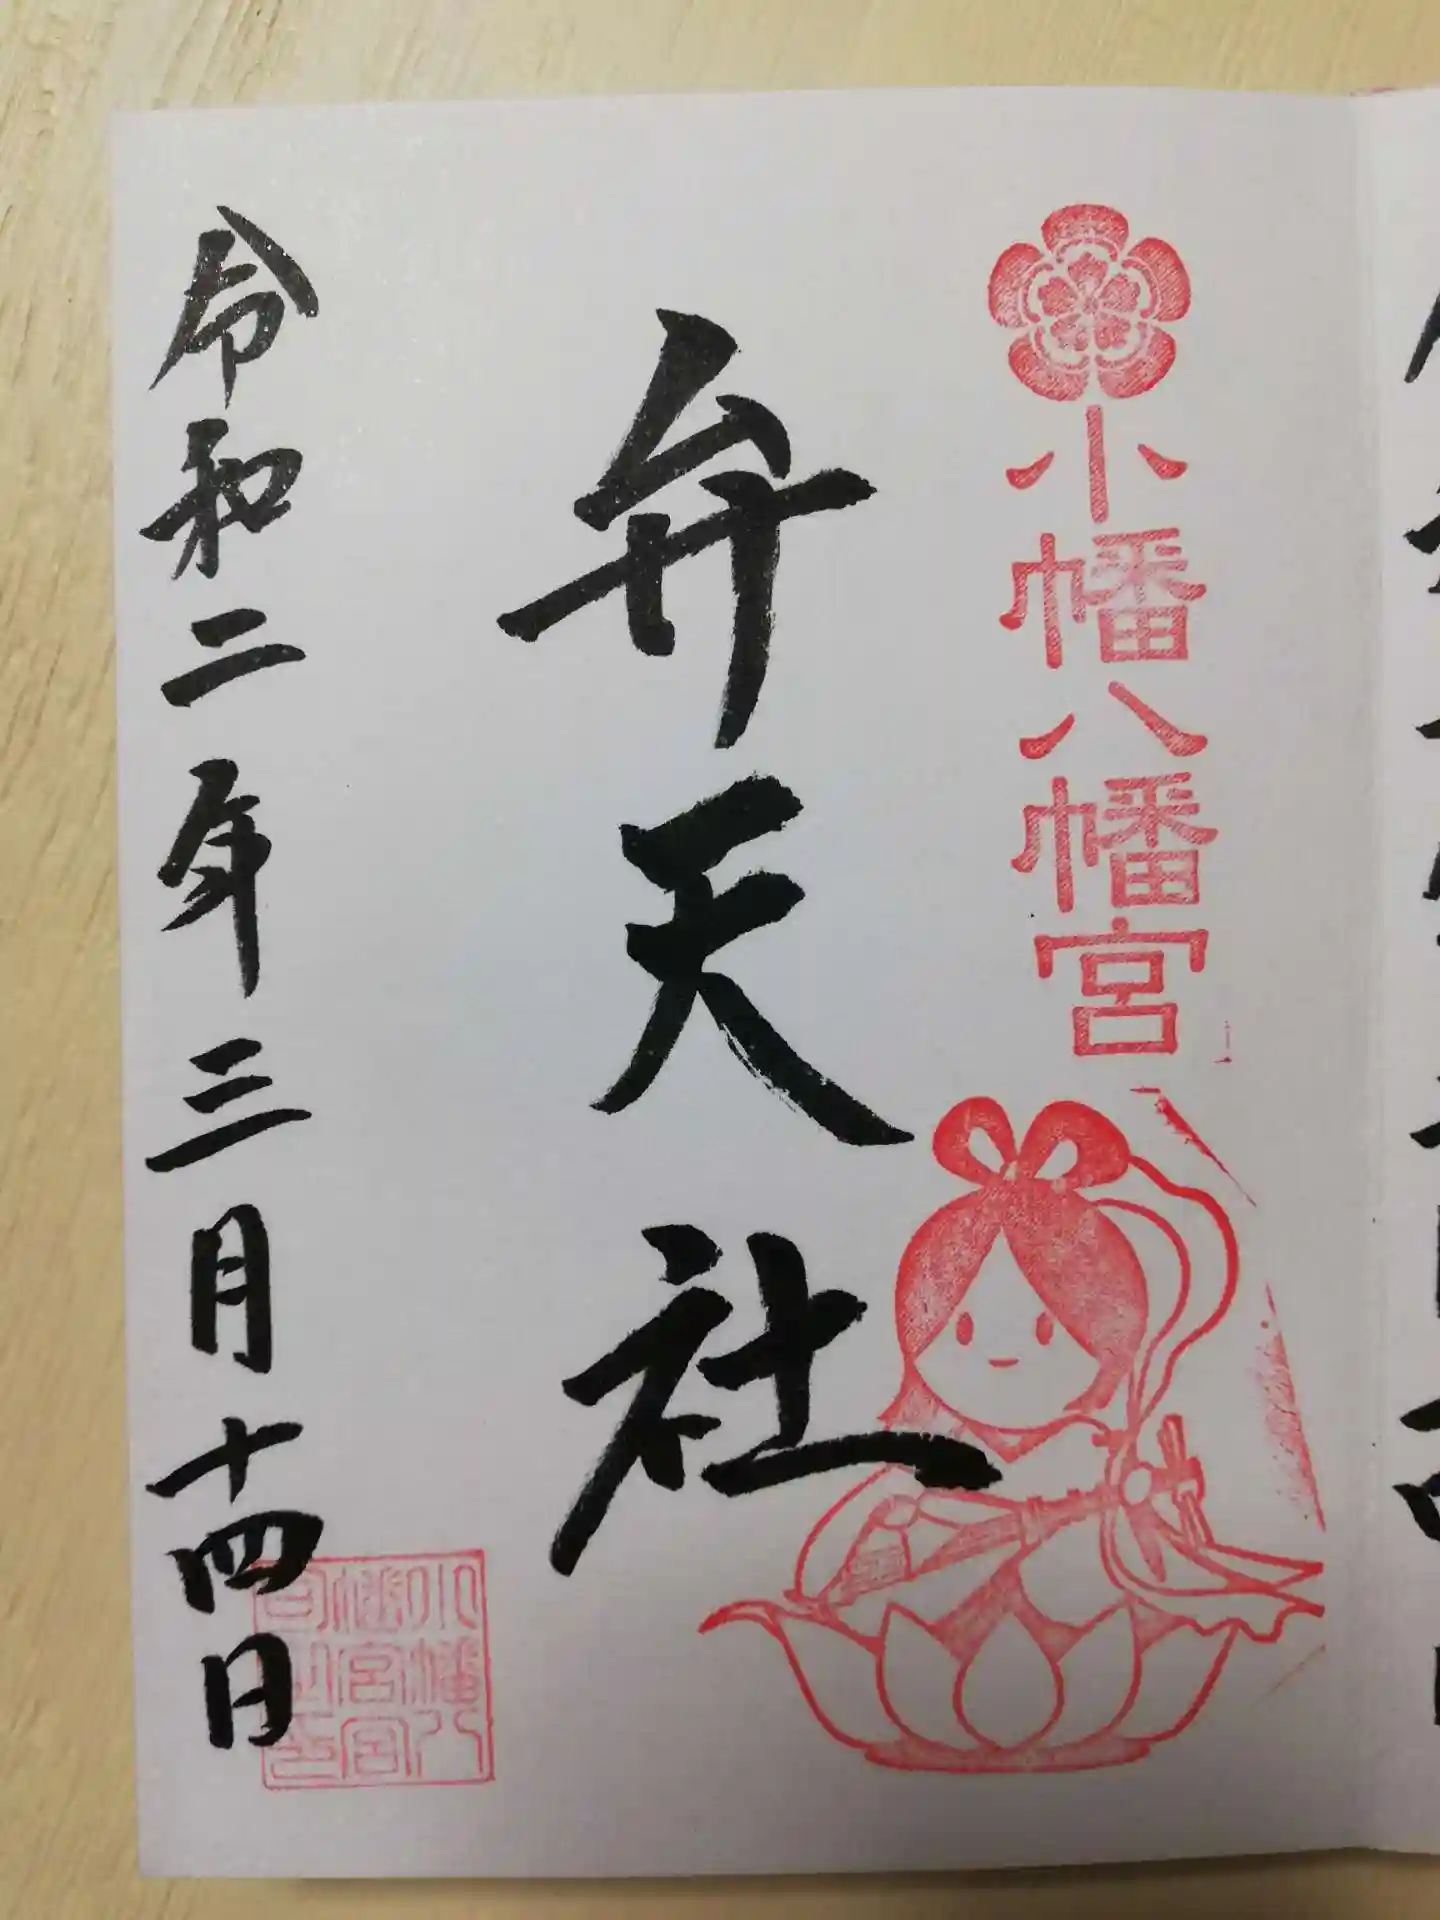 小幡八幡宮
弁天社
令和二年三月十四日
小幡八
幡宮宮
司之印